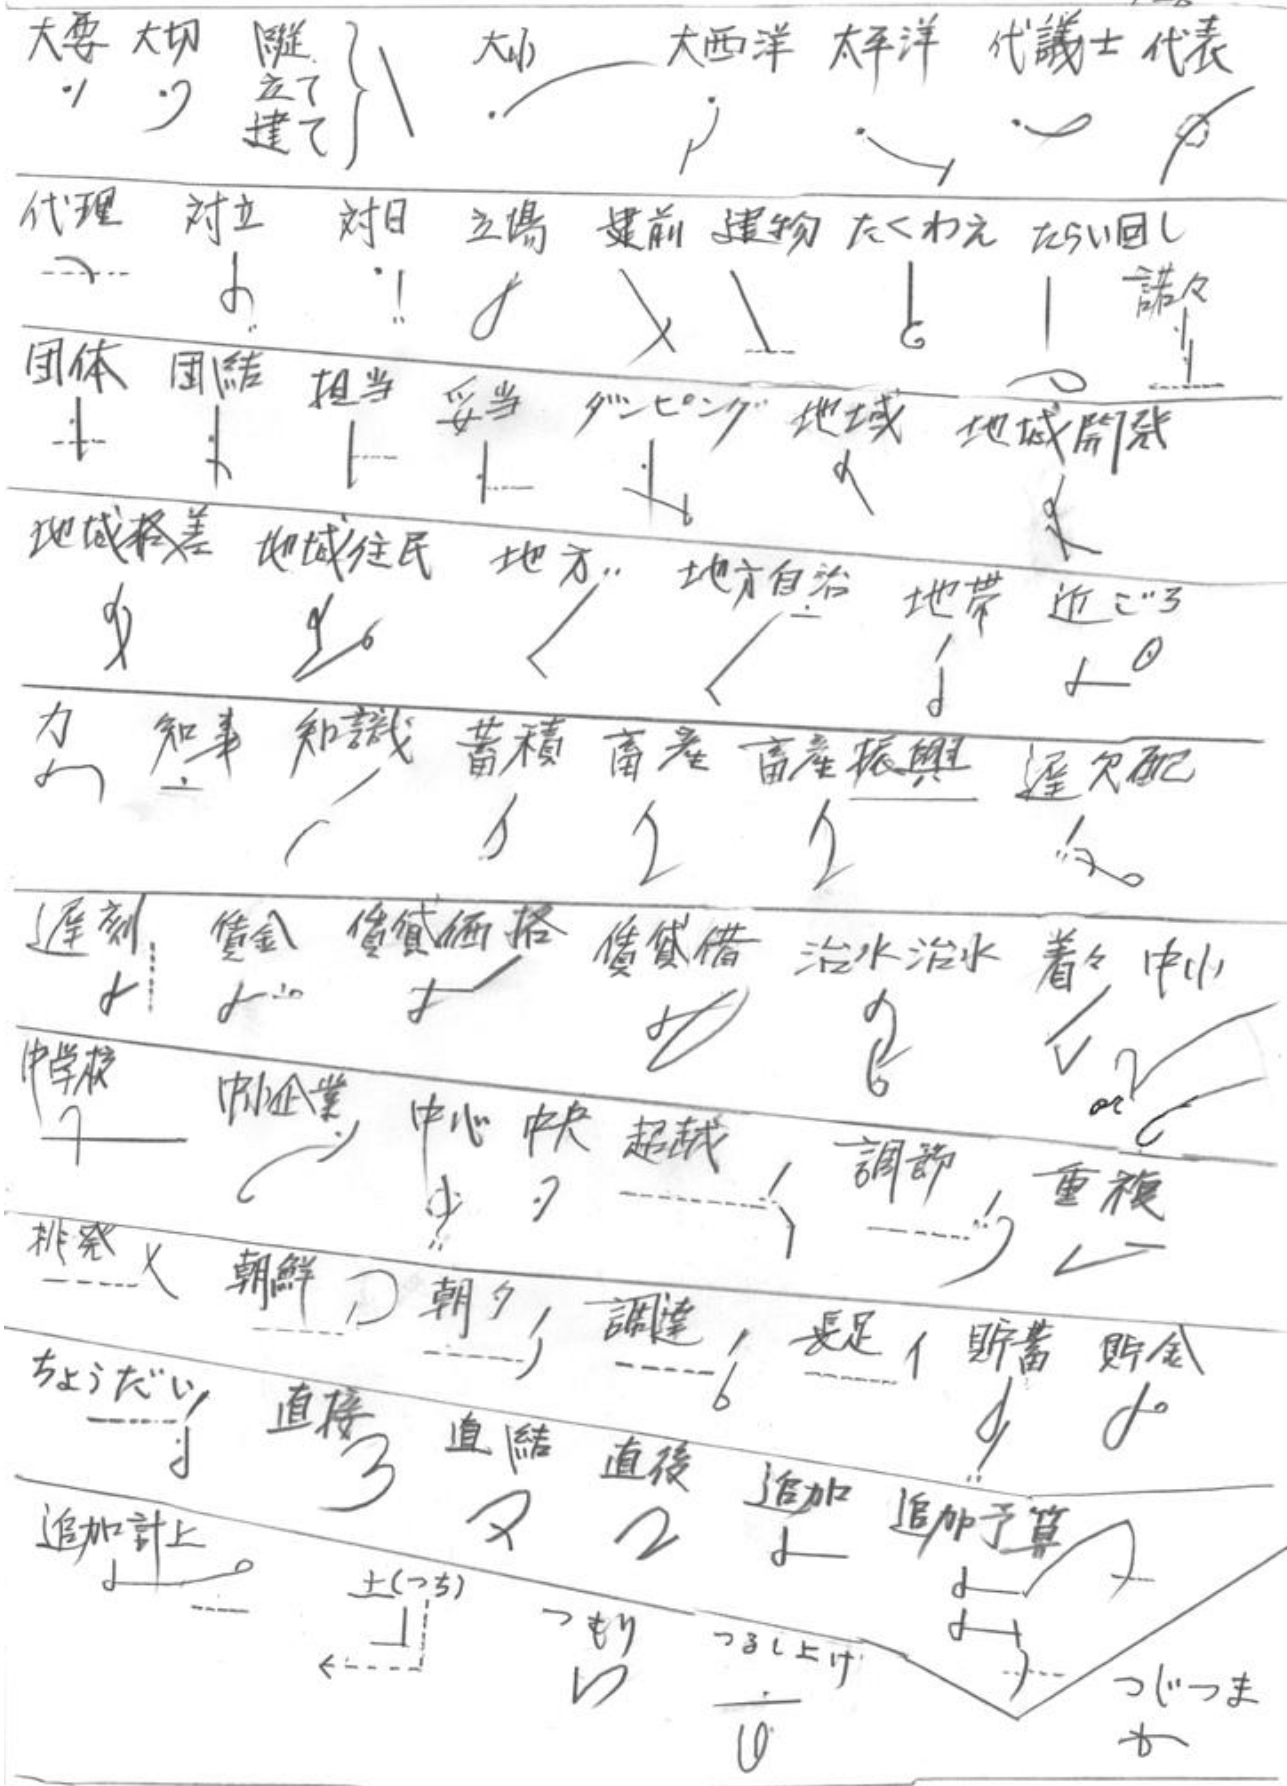 大要 大切 縦 大小 大西洋 太平洋 代議士 代表
立て
建て
代理 対立 対日 立場 建前 建物 たくわえ たらい回し
諾々
団体 団結 担当 妥当 ダンピング 地域 地域開発
地域格差 地域住民 地方 地方自治 地帯 近ごろ
力 知事 知識 蓄積 畜産 畜産振興 遅欠配
遅刻 賃金 賃貸価格 賃貸借 治水治水 着々 中小
or
中学校 中小企業 中心 中央 超越 調節 重複
挑発 朝鮮 朝夕 調達 長足 貯蓄 貯金
ちょうだい 直接 直結 直後 追加 追加予算
追加計上 土(つち) つもり つるし上げ つじつま